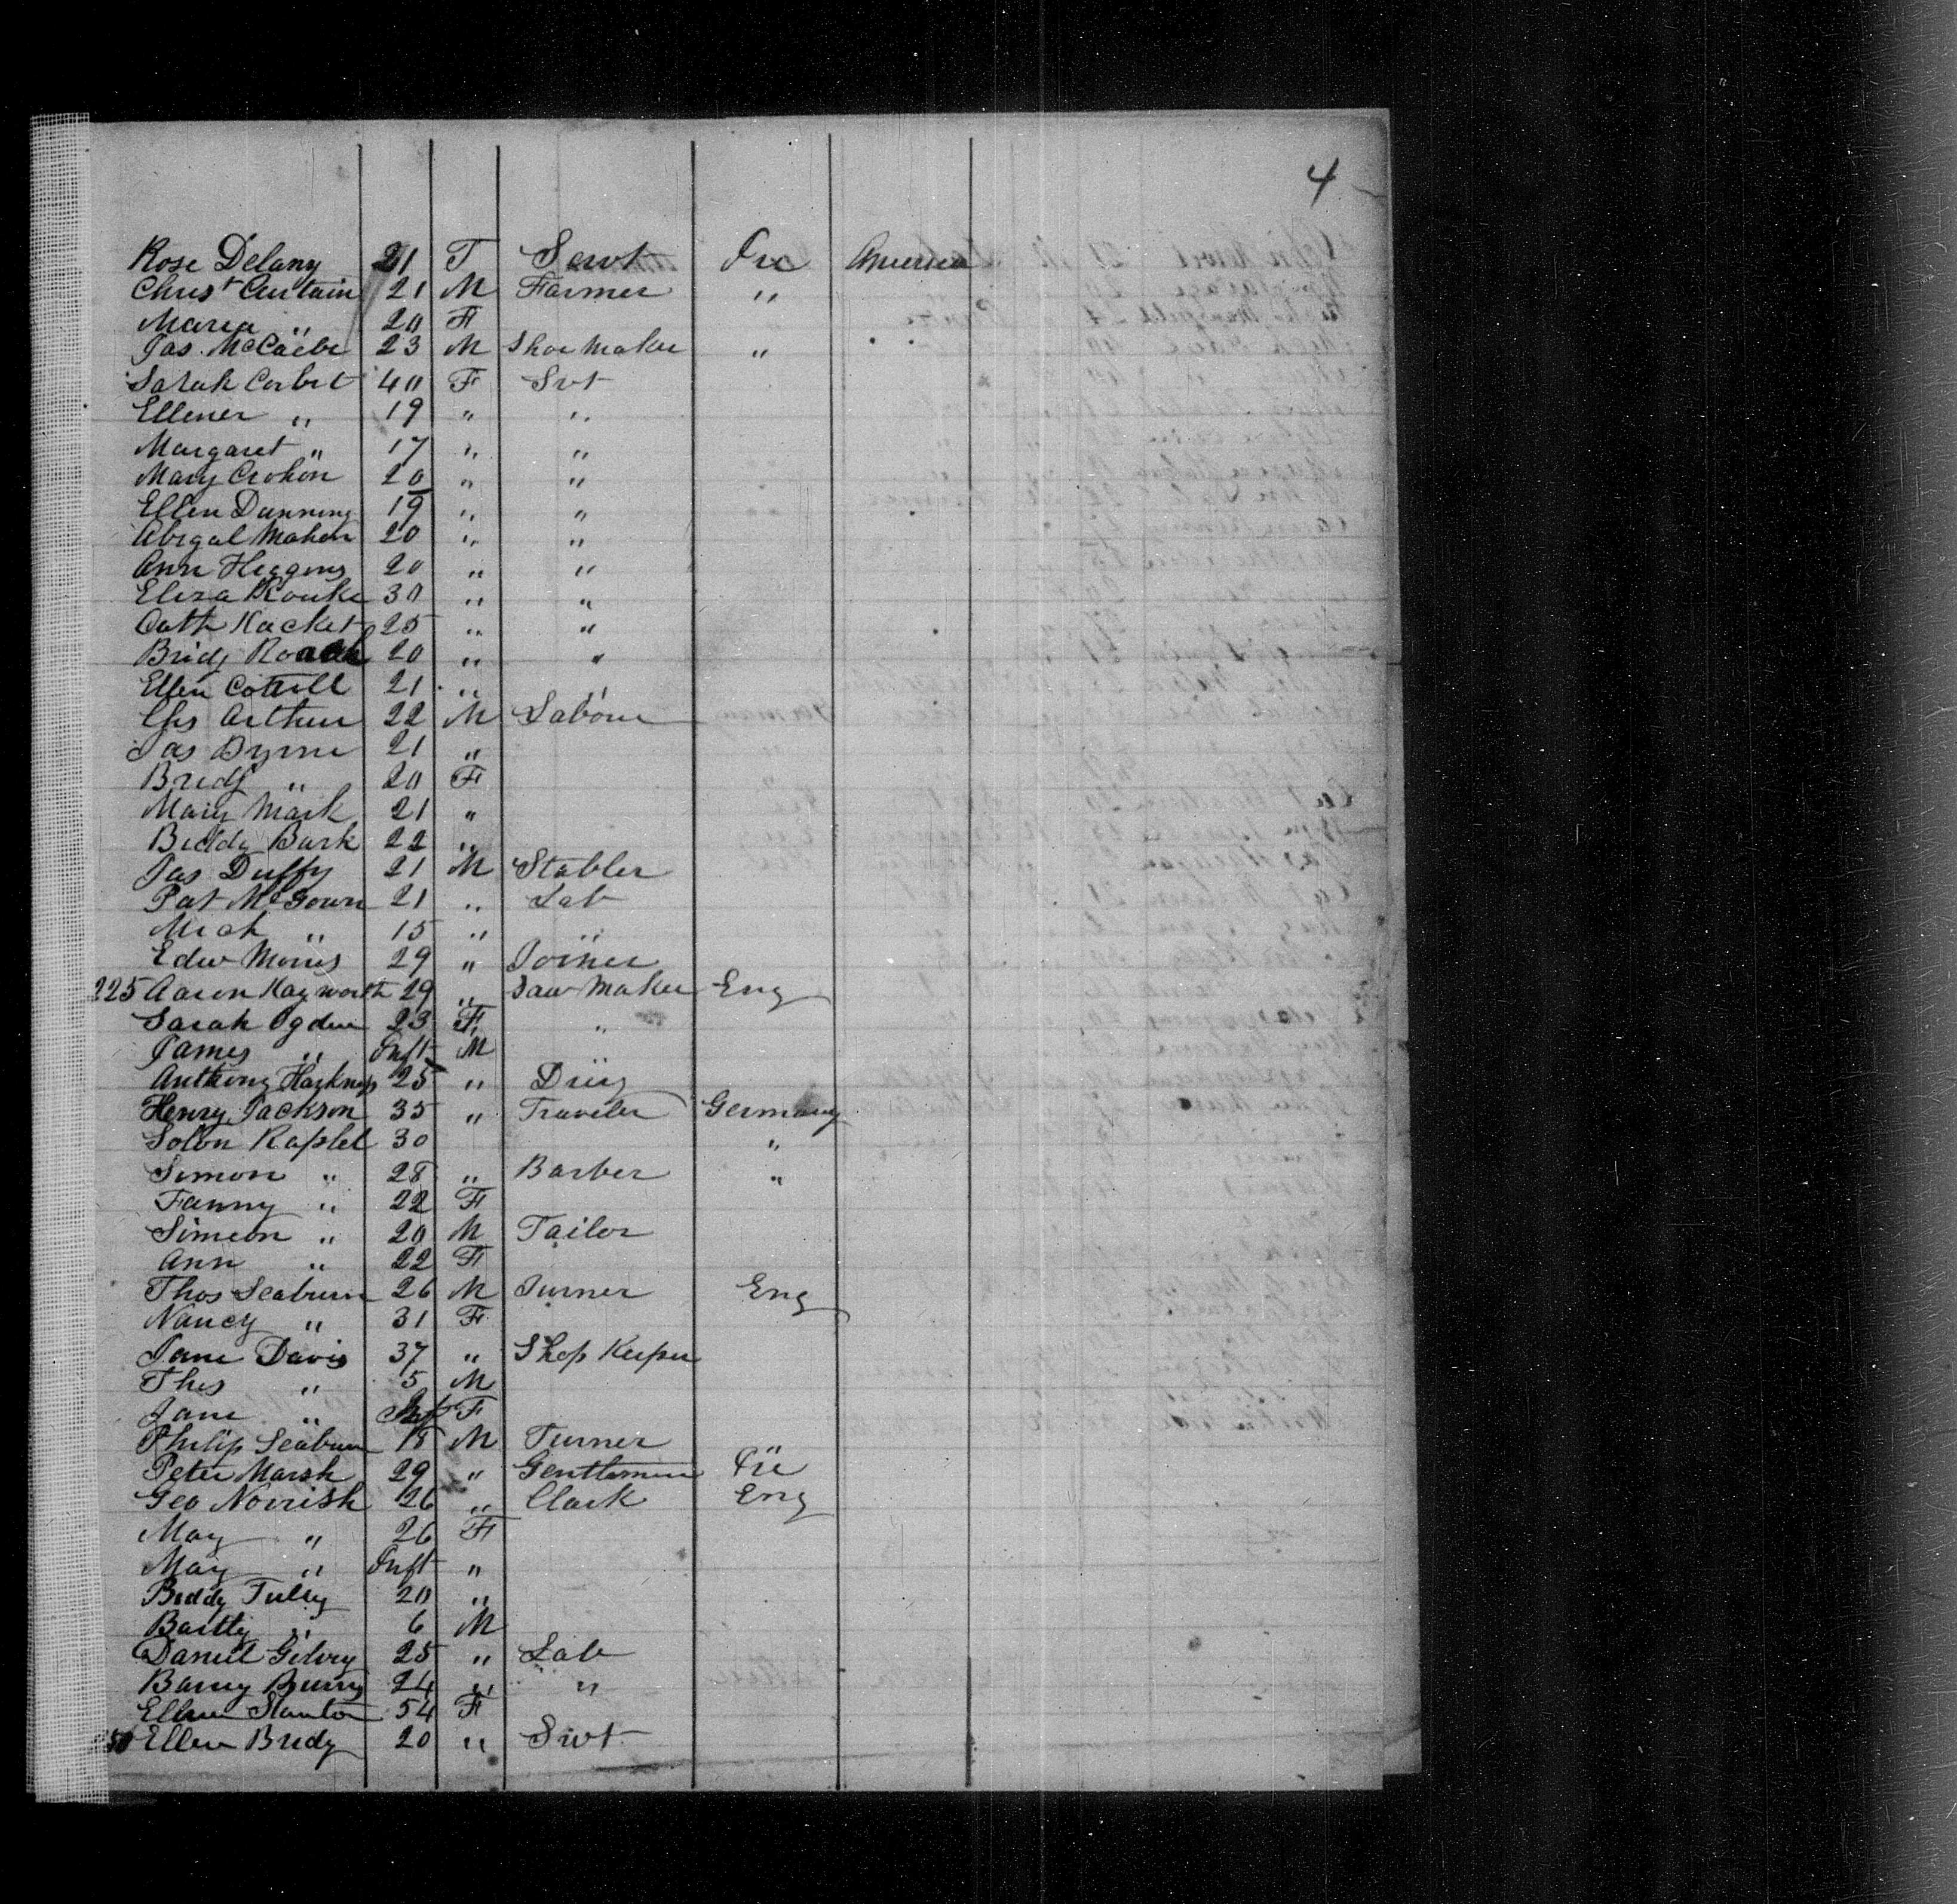 4
Rose Delany 21 F Servt Ire America
Christ Curtain 21 M Farmer "
Maria " 20 F
Jas. McCabe 23 M Shoe Maker "
Sarah Corbet 40 F Svt
Ellener " 19 " "
Margaret " 17 " "
Mary Crohon 20 " "
Ellen Dunning 19 " "
Abigal Mahon 20 " "
Ann Higgins 20 " "
Eliza Rourke 30 " "
Cath Hacket 25 " "
Bridg Roach 20 " "
Ellen Cottrell 21 " "
Chs Arthur 22 M Labour
Jas Byrne 21 "
Bridg " 20 F
Mary Mark 21 "
Biddy Bark 22 "
Jas Duffy 21 M Stabler
Pat McGown 21 " Lab
Mich " 15 " "
Edw Morris 29 " Joiner
225 Aaron Hayworth 29 " Saw Maker Eng
Sarah Ogden 23 F "
James " Inft M
Anthony Harkness 25 "
Henry Jackson 35 " Traveler Germany
Solon 30 "
Simon " 28 " Barber "
Fanny " 22 F
Simeon " 20 M Tailor
Ann " 22 F
Thos Seaburn 26 M Turner Eng
Nancy " 31 F
Jane Davis 37 " Shop Keeper
Thos " 5 M
Jane " Inft F
Philip Seaburn 18 M Turner
Peter Marsh 29 " Gentlemen Ire
Geo Norrish 26 " Clark Eng
May " 26 F
May " Inft "
Biddy Tully 20 "
Bartty " 6 M
Daniel 25 " Lab
Barny 24 " "
Ellen Stanton 54 F
50 Ellen Bridy 20 " Svt